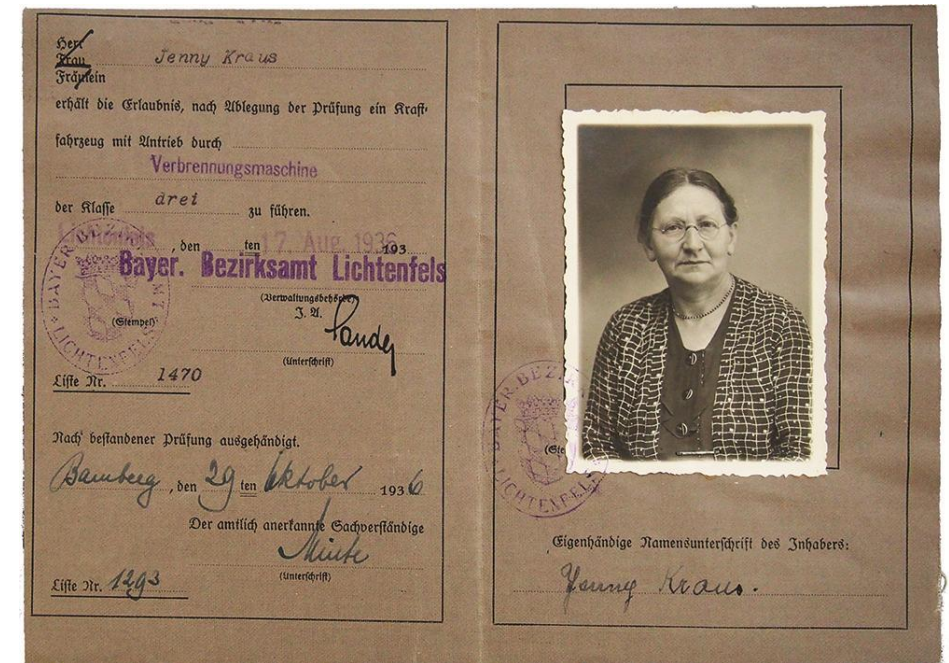 Herr
Frau Jenny Kraus
Fräulein
erhält die Erlaubnis, nach Ablegung der Prüfung ein Kraft-
fahrzeug mit Antrieb durch
Verbrennungsmaschine
der Klasse drei zu führen.
Lichtenfels, den ten 17. Aug. 1936 193
Bayer. Bezirksamt Lichtenfels
(Verwaltungsbehörde)
J. A.
BAYER. BEZIRKSAMT LICHTENFELS
(Stempel)
(Unterschrift)
Liste Nr. 1470
Nach bestandener Prüfung ausgehändigt.
Bamberg, den 29 ten Oktober 1936
Der amtlich anerkannte Sachverständige
(Unterschrift)
Liste Nr. 1293
BAYER. BEZIRKSAMT LICHTENFELS
Eigenhändige Namensunterschrift des Inhabers:
Jenny Kraus.